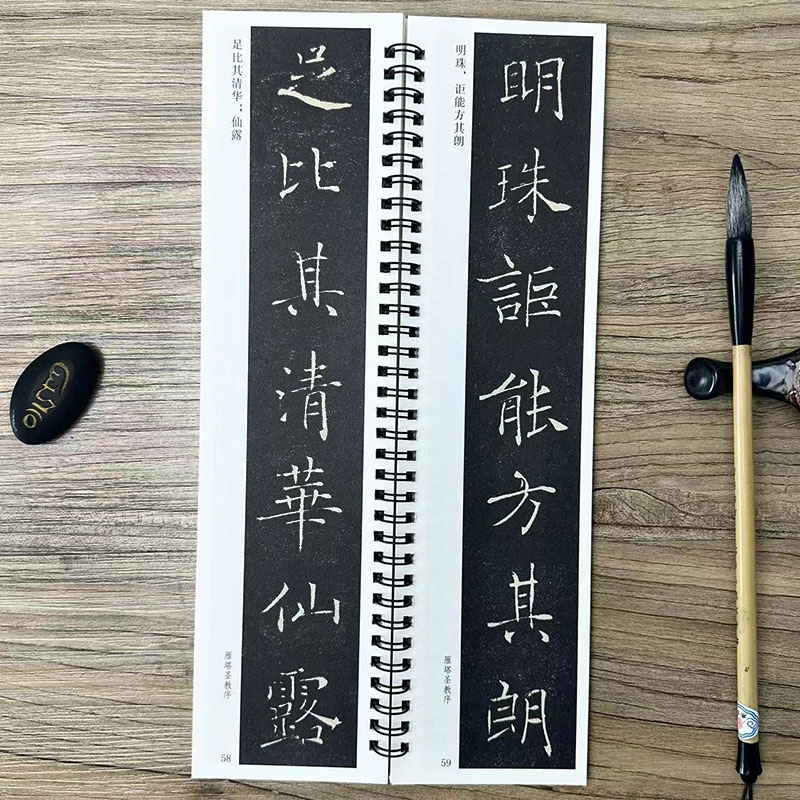 足比其清华；仙露
足比其清華仙露
雁塔圣教序
58
明珠，讵能方其朗
明珠詎能方其朗
雁塔圣教序
59